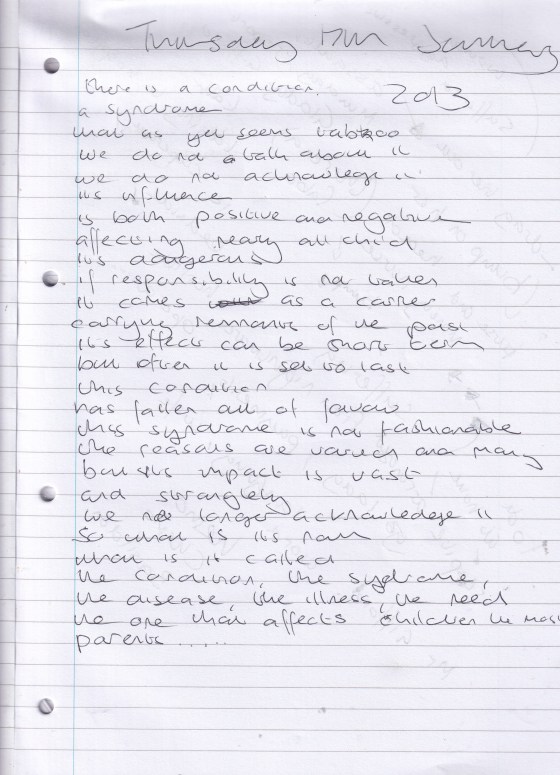 Thursday 17th January
2013
there is a condition.
a syndrome
that as yet seems tabboo
we do not talk about it
we do not acknowlege it
its influence
is both positive and negative
affecting neary all child
it's dangerous
if responsibility is not taken
it comes as a carrier
carrying remnants of the past
it's effects can be short term
but often it is set to last
this condition
has fallen out of favour
this syndrome is not fashionable
the reasons are varied and many
but its impact is vast
and strangely
we no longer acknowledege it
So what is its name
what is it called
the condition, the sydrome,
the disease, the illness, the need
the one that affects children the most
parents ......